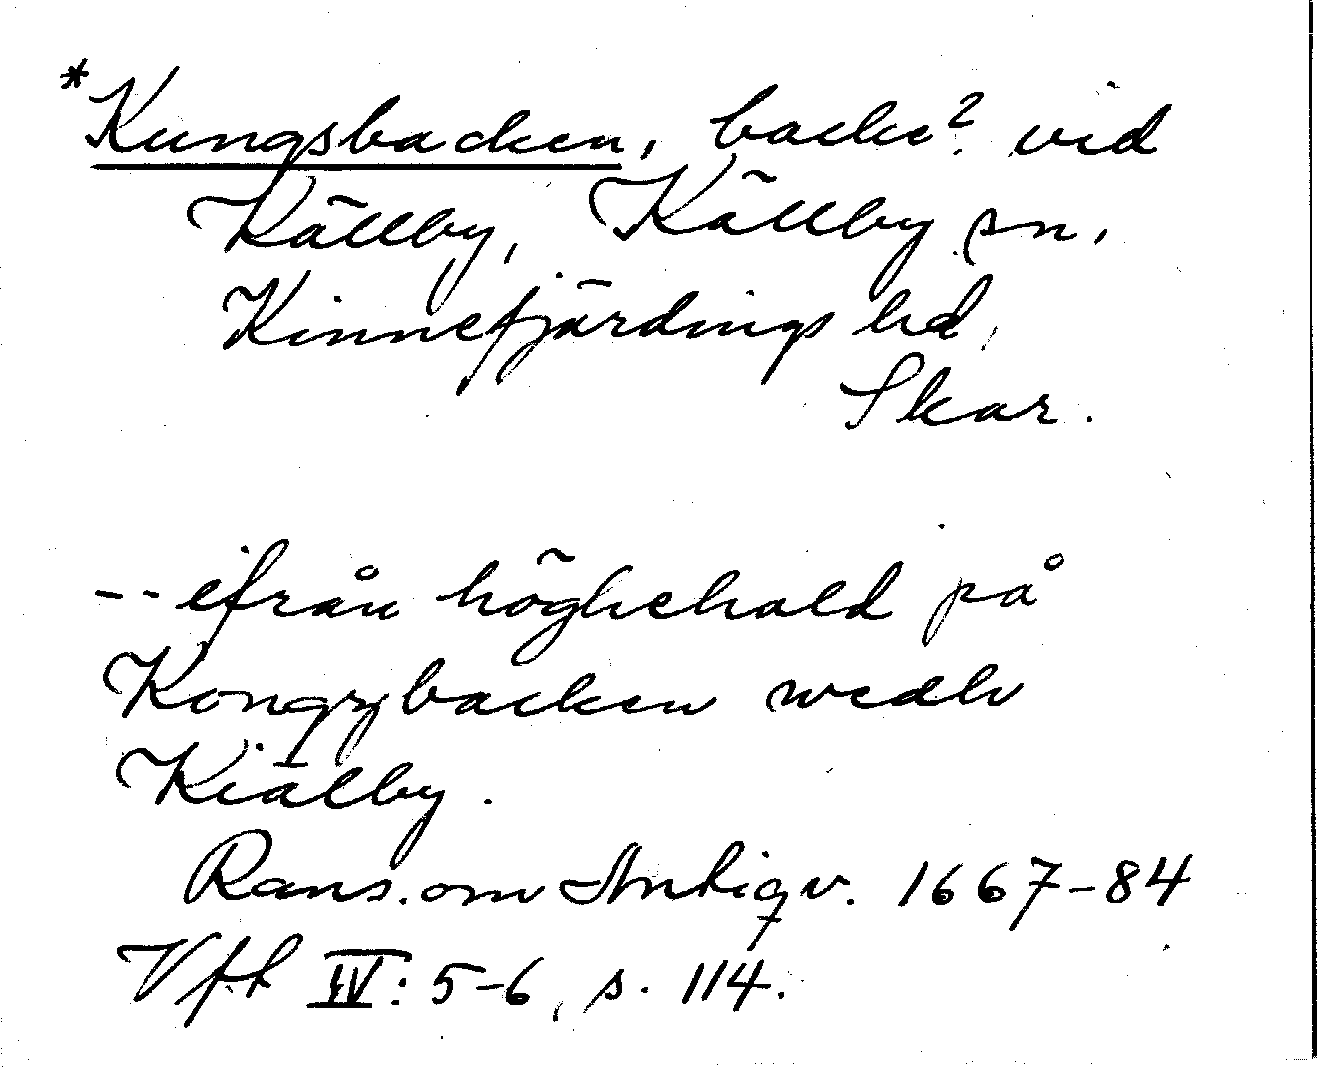 *Kungsbacken, backe? vid
Källby, Källby sn,
Kinnefjärdings hd,
Skar.
-- ifrån höghehald på
Kongzbacken wedh
Kiälby.
Rans. om Antiqv. 1667-84
Vfk IV: 5-6, s. 114.